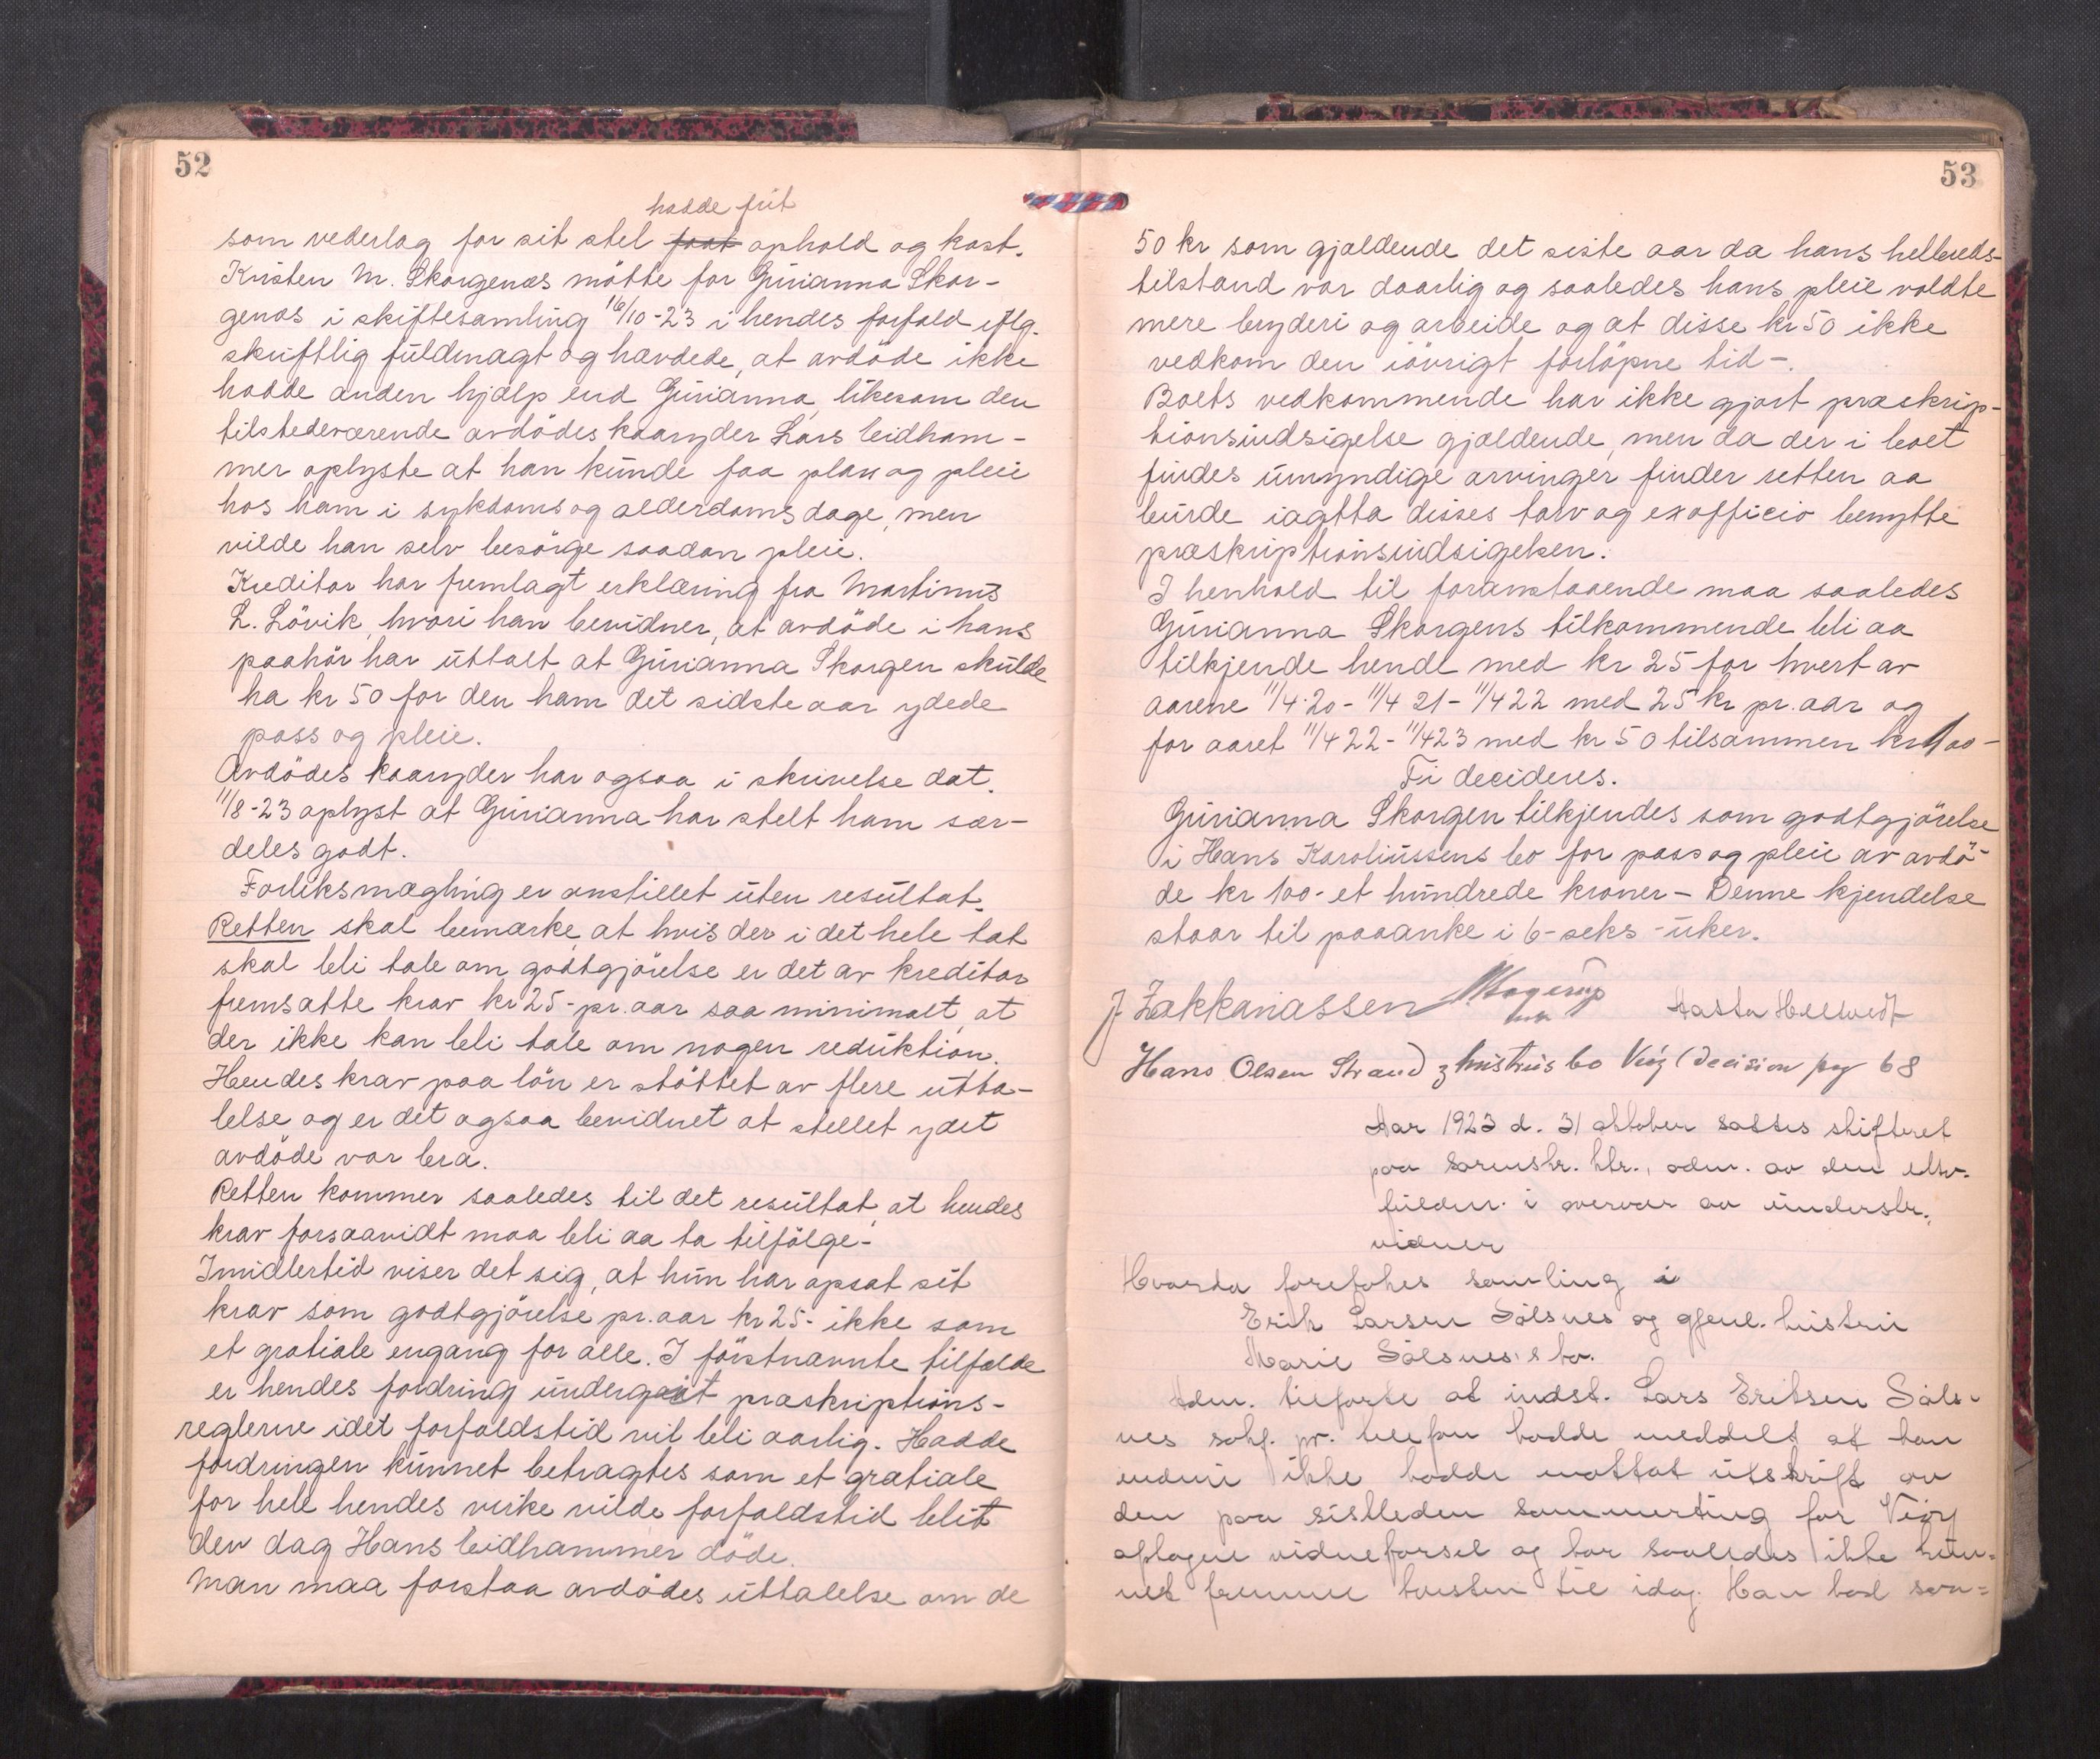 52
hadde frit
som vederlag for sit stel faat ophold og kost.
Kristen M. Skorgenæs mötte for Gurianna Skor-
genæs i skiftesamling 16/10-23 i hendes forfald iflg.
skriftlig fuldmagt og hævdede, at avdöde ikke
hadde anden hjælp end Gurianna, likesom den
tilstedeværende avdödes kaaryder Lars Eidham-
mer oplyste at han kunde faa plass og pleie
hos ham i sykdoms og alderdoms dage, men
vilde han selv besörge saadan pleie.
Kreditor har fremlagt erklæring fra Martinus
L. Lövik, hvori han bevidner, at avdöde i hans
paahör har uttalt at Gurianna Skorgen skulde
ha kr 50 for den ham det sidste aar ydede
pass og pleie.
Avdödes kaaryder har ogsaa i skrivelse dat.
11/8-23 oplyst at Gurianna har stelt ham sær-
deles godt.
Forliksmægling er anstillet uten resultat.
Retten skal bemærke, at hvis der i det hele tat
skal bli tale om godtgjörelse er det av kreditor
fremsatte krav kr 25- pr. aar saa minimalt, at
der ikke kan bli tale om nogen reduktion.
Hendes krav paa lön er stöttet av flere utta-
lelse og er det ogsaa bevidnet at stellet ydet
avdöde var bra.
Retten kommer saaledes til det resultat, at hendes
krav forsaavidt maa bli aa ta tilfölge.-
Imidlertid viser det sig, at hun har opsat sit
krav som godtgjörelse pr. aar kr 25- ikke som
et gratiale engang for alle. I förstnævnte tilfælde
er hendes fordring undergait præskriptions-
reglerne idet forfaldstid vil bli aarlig. Hadde
fordringen kunnet betragtes som et gratiale
for hele hendes virke vilde forfaldstid blit
den dag Hans Eidhammer döde.
Man maa forstaa avdödes uttalelse om de
53
50 kr som gjældende det siste aar da hans helbreds-
tilstand var daarlig og saaledes hans pleie voldte
mere bryderi og arbeide og at disse kr 50 ikke
vedkom den iövrigt forlöpne tid-.
Boets vedkommende har ikke gjort præskrip-
tionsindsigelse gjældende, men da der i boet
findes umyndige arvinger finder retten aa
burde iagtta disses tarv og exofficio benytte
præskriptionsindsigelsen.
I henhold til foranstaaende maa saaledes
Gurianna Skorgens tilkommende bli aa
tilkjende hende med kr 25 for hvert av
aarene 11/4.20 - 11/4 21 - 11/4 22 med 25 kr pr. aar og
for aaret 11/4 22 - 11/4 23 med kr 50 tilsammen kr 100-
Ti decideres.
Gurianna Skorgen tilkjendes som godtgjörelse
i Hans Karoliussens bo for pass og pleie av avdö-
de kr 100- et hundrede kroner - Denne kjendelse
staar til paaanke i 6- seks - uker.
J Zakkariassen Hagerup Aasta Helletvedt
Hans Olsen Strand & hustrus bo Veiy (Decision pag 68
Aar 1923 d. 31 oktober sattes skifteret
paa sorenskr. ktr., adm. av den edsv.
fuldm. i overvær av underskr.
vidner
Hvorda foretokes samling i
Erik Larsen Sölsnes og gjenl. hustru
Marie Sölsnes's bo.
Adm. tilforte at indst. Lars Eriksen Söls-
nes sakf. pr. telefon hadde meddelt at han
endnu ikke hadde mottat utskrift av
den paa sistleden sommerting for Veöy
optagne vidneforsel og har saaledes ikke kun-
net fremme tvisten til idag. Han bad saa-